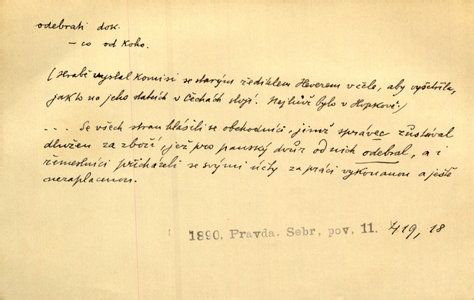 odebrati dok.
– co od koho.
(Hrabě vyslal komisi se starým ředitelem Heverem v čele, aby vyšetřila,
jak to na jeho statcích v Čechách stojí. Nejhůř bylo v Hopkově:)
... Se všech stran hlásili se obchodníci, jimž správec zůstával
dlužen za zboží, jež pro panský dvůr od nich odebral, a i
řemeslníci přicházeli se svými účty za práci vykonanou a ještě
nezaplacenou.
1890. Pravda. Sebr. pov. 11. 419, 18